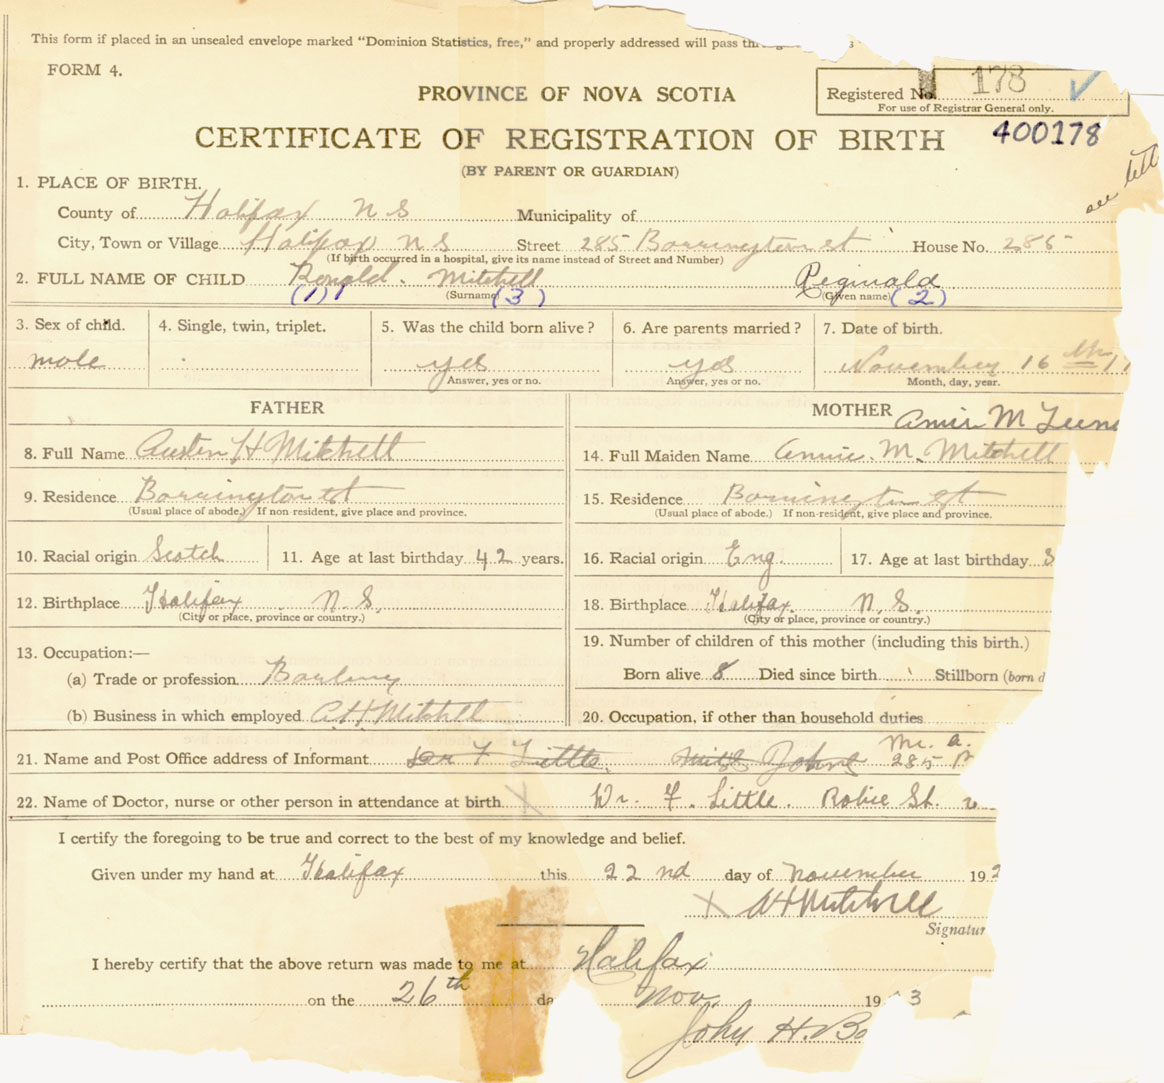 This form if placed in an unsealed envelope marked "Dominion Statistics, free," and properly addressed will pass
FORM 4.
PROVINCE OF NOVA SCOTIA
Registered No. 178 ✓
For use of Registrar General only.
CERTIFICATE OF REGISTRATION OF BIRTH
400178
(BY PARENT OR GUARDIAN)
see
1. PLACE OF BIRTH.
County of Halifax N S Municipality of
City, Town or Village Halifax N S Street 285 Barrington st House No. 285
(If birth occurred in a hospital, give its name instead of Street and Number)
2. FULL NAME OF CHILD Ronald. Mitchell Reginald
(1) (Surname) (3) (Given name) (2)
3. Sex of child. 4. Single, twin, triplet. 5. Was the child born alive? 6. Are parents married? 7. Date of birth.
male yes yes November 16 th
Answer, yes or no. Answer, yes or no. Month, day, year.
FATHER MOTHER Annie M
8. Full Name Austen H Mitchell 14. Full Maiden Name Annie. M. Mitchell
9. Residence Barrington st 15. Residence Barrington st
(Usual place of abode.) If non-resident, give place and province. (Usual place of abode.) If non-resident, give place and province.
10. Racial origin Scotch 11. Age at last birthday 42 years. 16. Racial origin Eng. 17. Age at last birthday 3
12. Birthplace Halifax N. S. 18. Birthplace Halifax. N. S.
(City or place, province or country.) (City or place, province or country.)
19. Number of children of this mother (including this birth.)
13. Occupation:—
(a) Trade or profession Born alive 8 Died since birth Stillborn (born d
(b) Business in which employed A H Mitchell 20. Occupation, if other than household duties
Mr. A.
21. Name and Post Office address of Informant F Little. 285
22. Name of Doctor, nurse or other person in attendance at birth X Dr. F. Little. Robie St.
I certify the foregoing to be true and correct to the best of my knowledge and belief.
Given under my hand at Halifax this 22 nd day of November 192
X A H Mitchell
Signatur
I hereby certify that the above return was made to me at Halifax
on the 26th da Nov. 19 3
John H. Ba